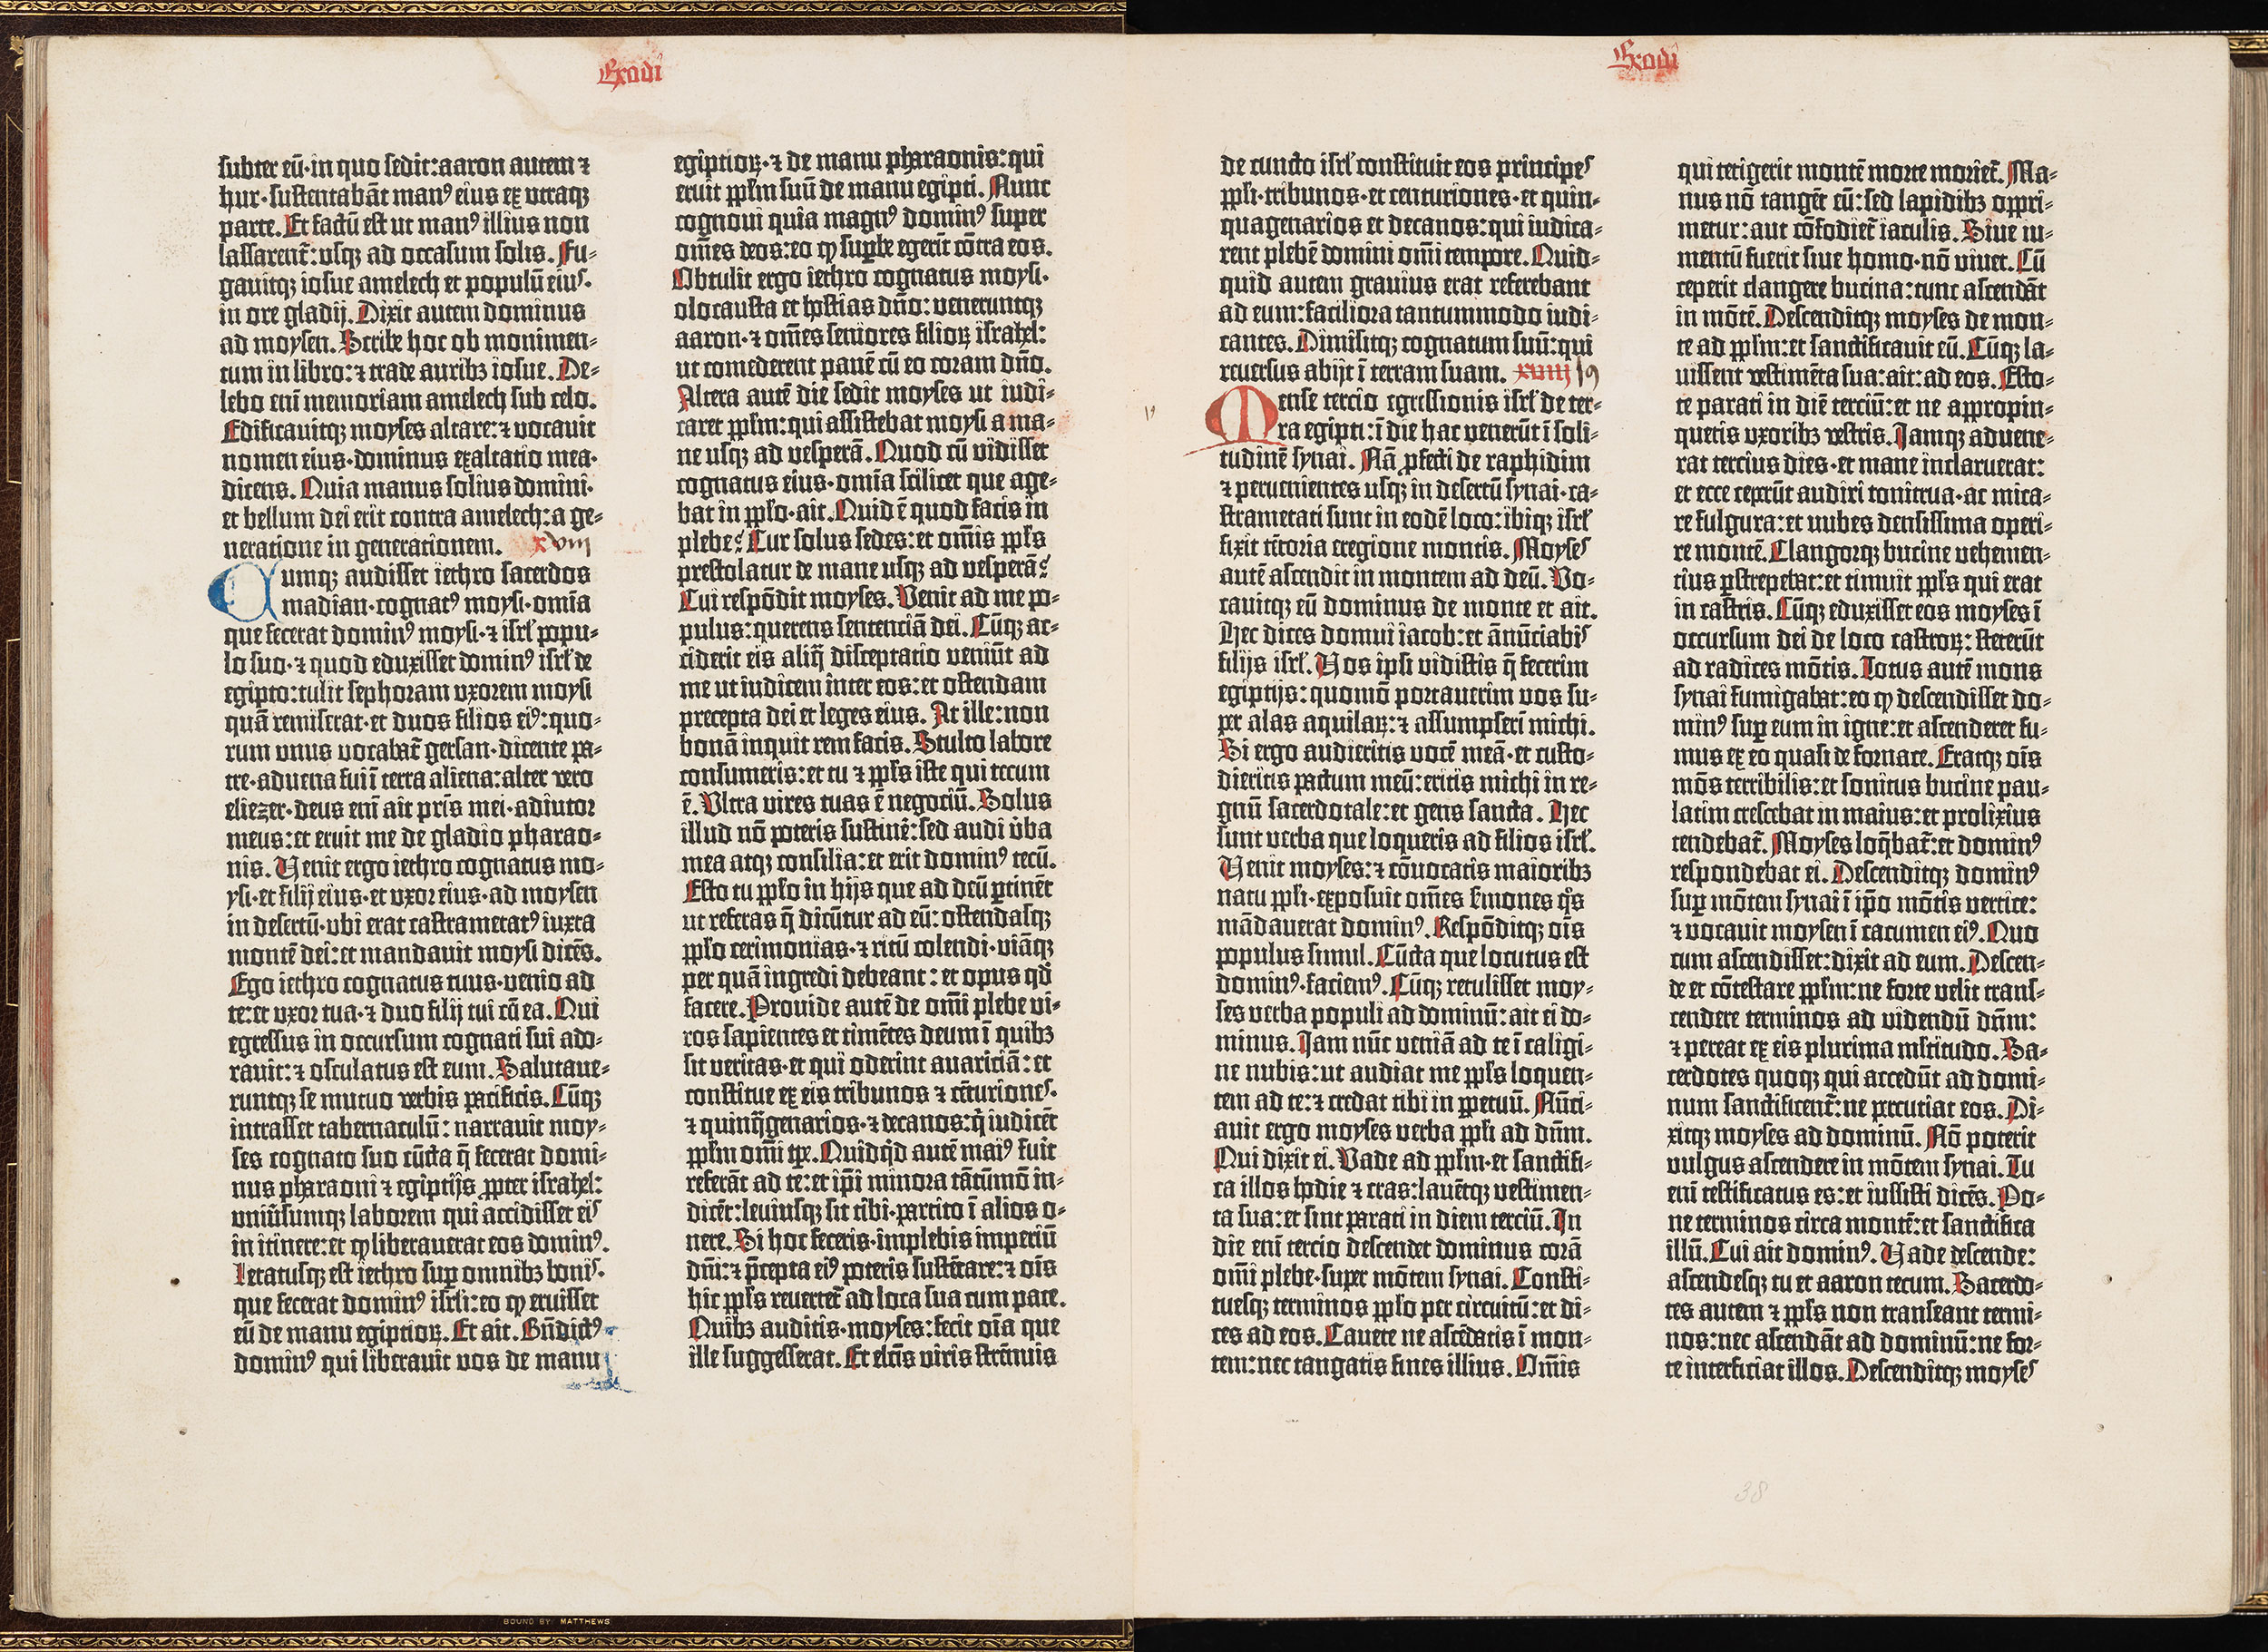 Exodi
subter eū·in quo sedit:aaron autem ⁊
hur·sustentabāt manꝰ eius ex utraqꝫ
parte. Et factū est ut manꝰ illius non
lassarent̄:usqꝫ ad occasum solis. Fu-
gauitqꝫ iosue amelech et populū eius·
in ore gladij. Dixit autem dominus
ad moysen. Scribe hoc ob monimen-
tum in libro:⁊ trade auribꝫ iosue. De-
lebo eni memoriam amelech sub celo.
Edificauitqꝫ moyses altare:⁊ vocauit
nomen eius·dominus exaltatio mea·
dicens. Quia manus solius domini·
et bellum dei erit contra amelech:a ge-
neratione in generationem. xviij
Cumqꝫ audisset iethro sacerdos
madian·cognatꝰ moysi·omīa
que fecerat dominꝰ moysi·⁊ isrł popu-
lo suo·⁊ quod eduxisset dominꝰ isrł de
egipto:tulit sephoram vxorem moysi
quā remiserat·et duos filios eiꝰ:quo-
rum vnus vocabat̄ gersan·dicente pa-
tre·aduena fui ī terra aliena:alter vero
eliezer·deus eni ait pris mei·adiutor
meus:et eruit me de gladio pharao-
nis. Venit ergo iethro cognatus mo-
ysi·et filij eius·et vxor eius·ad moysen
in desertū·vbi erat castrametatꝰ iuxta
montē dei:et mandauit moysi dicēs.
Ego iethro cognatus tuus·venio ad
te:et vxor tua·⁊ duo filij tui cū ea. Qui
egressus in occursum cognati sui ado-
rauit:⁊ osculatus est eum. Salutaue-
runtqꝫ se mutuo verbis pacificis. Cūqꝫ
intrasset tabernaculū: narrauit moy-
ses cognato suo cūcta q̄ fecerat domi-
nus pharaoni ⁊ egiptijs ꝓpter israhel:
vniūsumqꝫ laborem qui accidisset eis
in itinere:et ꝙ liberauerat eos dominꝰ.
Letatusqꝫ est iethro suꝑ omnibꝫ bonis·
que fecerat dominꝰ isrłi:eo ꝙ eruisset
eū de manu egiptioꝝ. Et ait. Bn̄dictꝰ
dominꝰ qui liberauit vos de manu
egiptioꝝ·⁊ de manu pharaonis:qui
eruit pplm suū de manu egipti. Nunc
cognoui quia magnꝰ dominꝰ super
om̄es deos:eo ꝙ suꝑbe egerīt cōtra eos.
Obtulit ergo iethro cognatus moysi·
olocausta et hostias dn̄o: veneruntqꝫ
aaron·⁊ om̄es seniores filioꝝ israhel:
ut comederent panē cū eo coram dn̄o.
Altera autē die sedit moyses ut iudi-
caret pplm:qui assistebat moysi a ma-
ne usqꝫ ad vesperā. Quod cū vidisset
cognatus eius·omīa scilicet que age-
bat in pplo·ait. Quid ē quod facis in
plebe? Cur solus sedes:et om̄is ppls
prestolatur de mane usqꝫ ad vesperā?
Cui respōdit moyses. Venit ad me po-
pulus:querens sentenciā dei. Cūqꝫ ac-
ciderit eis aliq̄ disceptatio veniūt ad
me ut iudicem inter eos:et ostendam
precepta dei et leges eius. At ille:non
bonā inquit rem facis. Stulto labore
consumeris:et tu ⁊ ppls iste qui tecum
ē. Vltra vires tuas ē negociū. Solus
illud nō poteris sustinē:sed audi v̇ba
mea atqꝫ consilia:et erit dominꝰ tecū.
Esto tu pplo in hijs que ad deū ꝑtinēt
ut referas q̄ dicūtur ad eū: ostendasqꝫ
pplo cerimonias·⁊ ritū colendi·viāqꝫ
per quā ingredi debeant: et opus qđ
facere. Prouide autē de om̄i plebe vi-
ros sapientes et timētes deum ī quibꝫ
sit veritas·et qui oderint auariciā: et
constitue ex eis tribunos ⁊ cēturiones·
⁊ quinq̄genarios·⁊ decanos:q̇ iudicēt
pplm om̄i tꝑe. Quidq̇d autē maiꝰ fuit
referāt ad te:et ipī minora tātūmō iu-
dicēt:leuiusqꝫ sit tibi·partito ī alios o-
nere. Si hoc feceris·implebis imperiū
dn̄i:⁊ p̄cepta eiꝰ poteris sustētare:⁊ oīs
hic ppls reuertet̄ ad loca sua cum pace.
Quibꝫ auditis·moyses:fecit oīa que
ille suggesserat. Et elc̄is viris strēnuis
Exodi
de cuncto isrł constituit eos principes
ppli·tribunos·et centuriones·et quin-
quagenarios et decanos:qui iudica-
rent plebē domini om̄i tempore. Quid-
quid autem grauius erat referebant
ad eum:faciliora tantummodo iudi-
cantes. Dimisitqꝫ cognatum suū:qui
reuersus abijt ī terram suam. xviiij 19
19
Mense tercio egressionis isrł de ter-
ra egipti:ī die hac venerūt ī soli-
tudinē synai. Nā ꝓfecti de raphidim
⁊ peruenientes usqꝫ in desertū synai·ca-
strametati sunt in eodē loco:ibiqꝫ isrł
fixit tētoria eregione montis. Moyses
autē ascendit in montem ad deū. Vo-
cauitqꝫ eū dominus de monte et ait.
Hec dices domui iacob:et ānūciabis
filijs isrł. Vos ipsi vidistis q̄ fecerim
egiptijs:quomō portauerim vos su-
per alas aquilaꝝ:⁊ assumpserī michi.
Si ergo audieritis vocē meā·et custo-
dieritis pactum meū:eritis michi in re-
gnū sacerdotale:et gens sancta. Hec
sunt verba que loqueris ad filios isrł.
Venit moyses:⁊ cōuocatis maioribꝫ
natu ppli·exposuit om̄es s̄mones q̊s
mādauerat dominꝰ. Respōditqꝫ oīs
populus simul. Cūcta que locutus est
dominꝰ·faciemꝰ. Cūqꝫ retulisset moy-
ses verba populi ad dominū:ait ei do-
minus. Iam nūc veniā ad te ī caligi-
ne nubis:ut audiat me ppls loquen-
tem ad te:⁊ credat tibi in ꝑpetuū. Nūci-
auit ergo moyses verba ppli ad dn̄m.
Qui dixit ei. Vade ad pplm·et sanctifi-
ca illos hodie ⁊ cras:lauētqꝫ vestimen-
ta sua:et sint parati in diem terciū. In
die eni tercio descendet dominus corā
om̄i plebe·super mōtem synai. Consti-
tuesqꝫ terminos pplo per circuitū:et di-
ces ad eos. Cauete ne ascēdatis ī mon-
tem:nec tangatis fines illius. Om̄is
qui tetigerit montē morte moriet̄. Ma-
nus nō tanget̄ eū:sed lapidibꝫ oppri-
metur:aut cōfodiet̄ iaculis. Siue iu-
mentū fuerit siue homo·nō viuet. Cū
ceperit clangere bucina:tunc ascendāt
in mōtē. Descenditqꝫ moyses de mon-
te ad pplm:et sanctificauit eū. Cūqꝫ la-
uissent vestimēta sua:ait:ad eos. Esto-
te parati in diē terciū:et ne appropin-
quetis vxoribꝫ vestris. Iamqꝫ aduene-
rat tercius dies·et mane inclaruerat:
et ecce ceperūt audiri tonitrua·ac mica-
re fulgura:et nubes densissima operi-
re montē. Clangorqꝫ bucine vehemen-
tius ꝑstrepebat:et timuit ppls qui erat
in castris. Cūqꝫ eduxisset eos moyses ī
occursum dei de loco castroꝝ: steterūt
ad radices mōtis. Totus autē mons
synai fumigabat:eo ꝙ descendisset do-
minꝰ suꝑ eum in igne:et ascenderet fu-
mus ex eo quasi de fornace. Eratqꝫ oīs
mōs terribilis:et sonitus bucine pau-
latim crescebat in maius:et prolixius
tendebat̄. Moyses loq̄bat̄:et dominꝰ
respondebat ei. Descenditqꝫ dominꝰ
suꝑ mōtem synai ī ipō mōtis vertice:
⁊ vocauit moysen ī cacumen eiꝰ. Quo
cum ascendisset:dixit ad eum. Descen-
de et cōtestare pplm:ne forte velit trans-
cendere terminos ad videndū dn̄m:
⁊ pereat ex eis plurima ml̄titudo. Sa-
cerdotes quoqꝫ qui accedūt ad domi-
num sanctificent̄:ne percutiat eos. Di-
xitqꝫ moyses ad dominū. Nō poterit
vulgus ascendere in mōtem synai. Tu
eni testificatus es:et iussisti dicēs. Po-
ne terminos circa montē:et sanctifica
illū. Cui ait dominꝰ. Vade descende:
ascendesqꝫ tu et aaron tecum. Sacerdo-
tes autem ⁊ ppls non transeant termi-
nos:nec ascendāt ad dominū:ne for-
te interficiat illos. Descenditqꝫ moyses
38
BOUND BY MATTHEWS